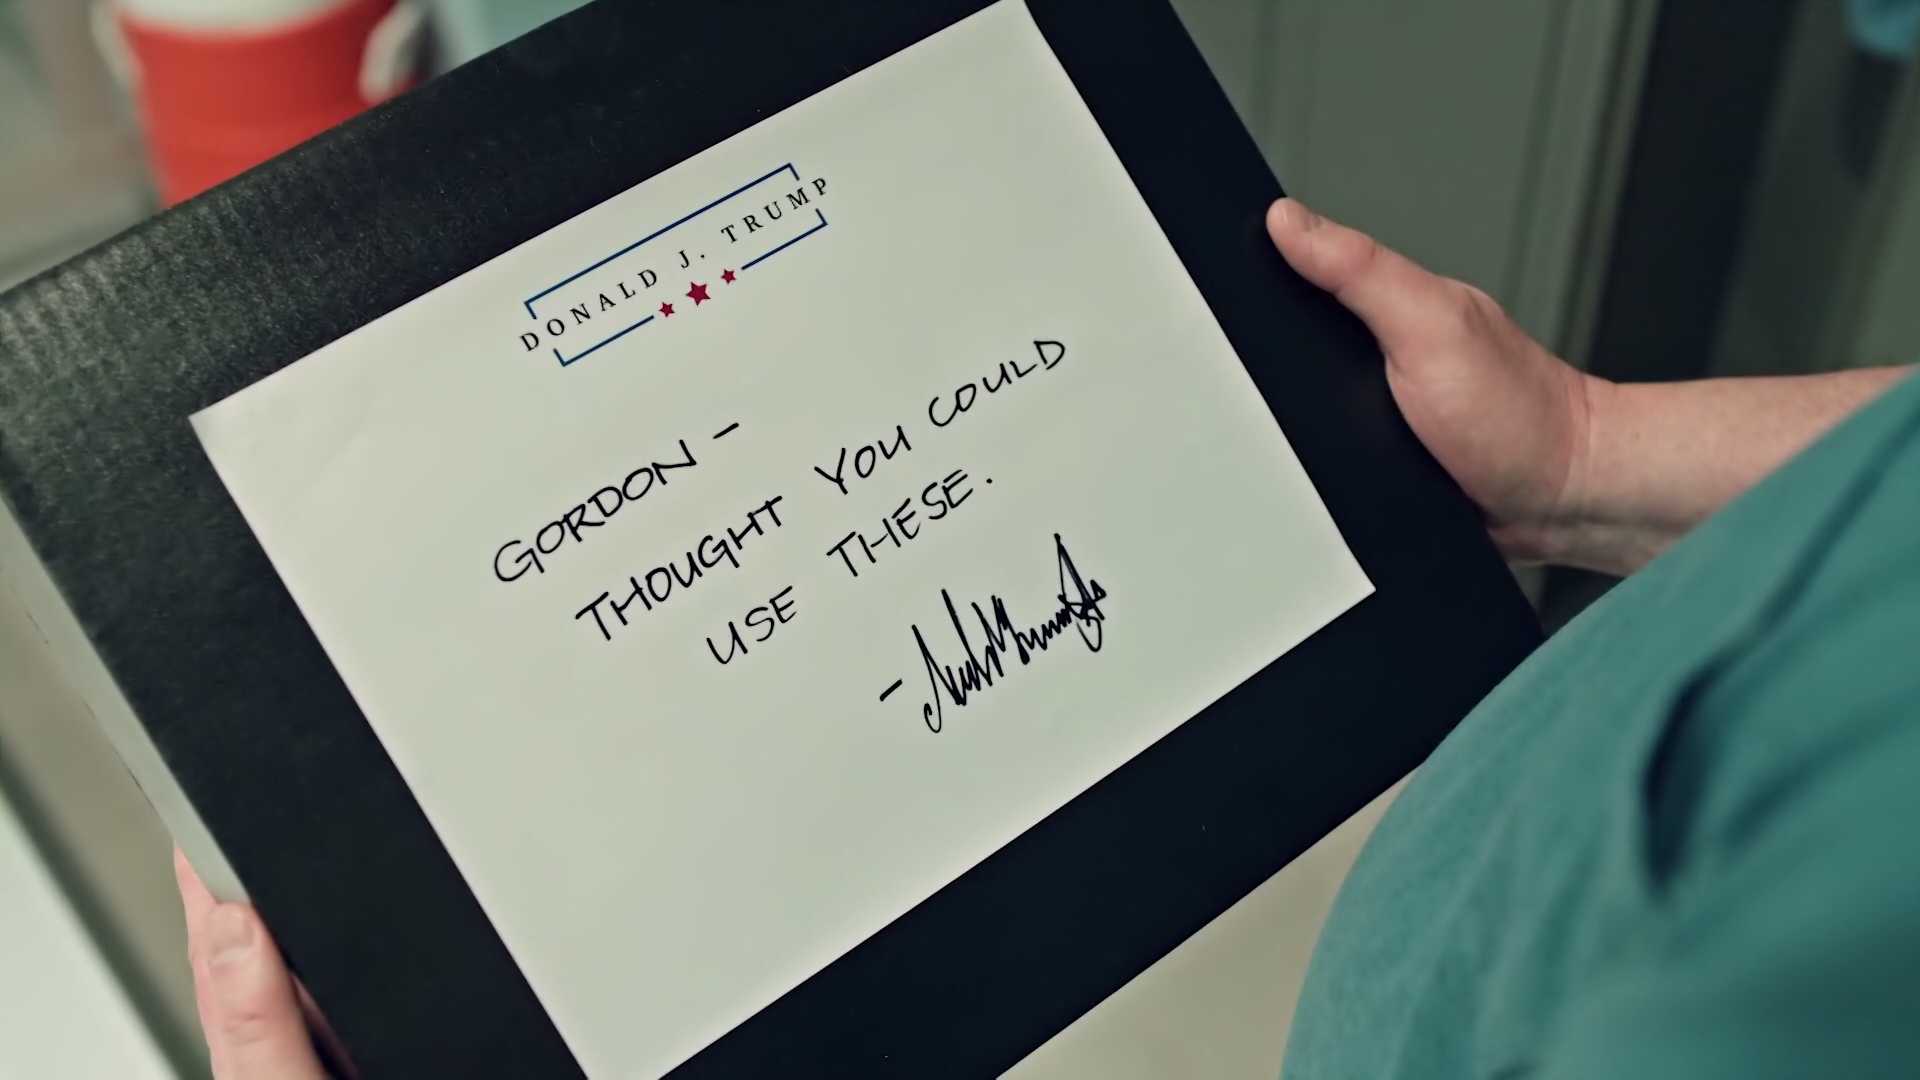 DONALD J. TRUMP
GORDON -
THOUGHT YOU COULD
USE THESE.